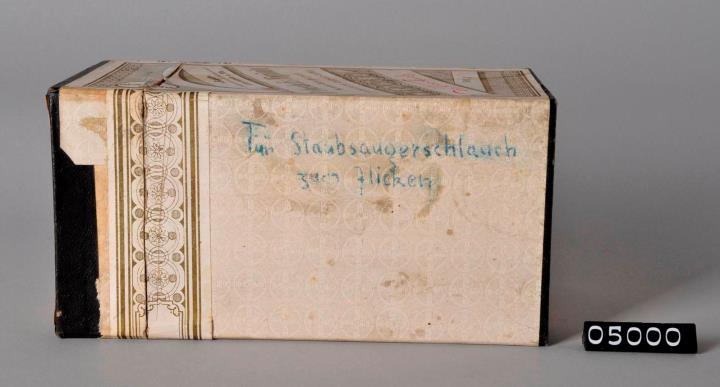 Für Staubsaugerschlauch
zum flicken
05000